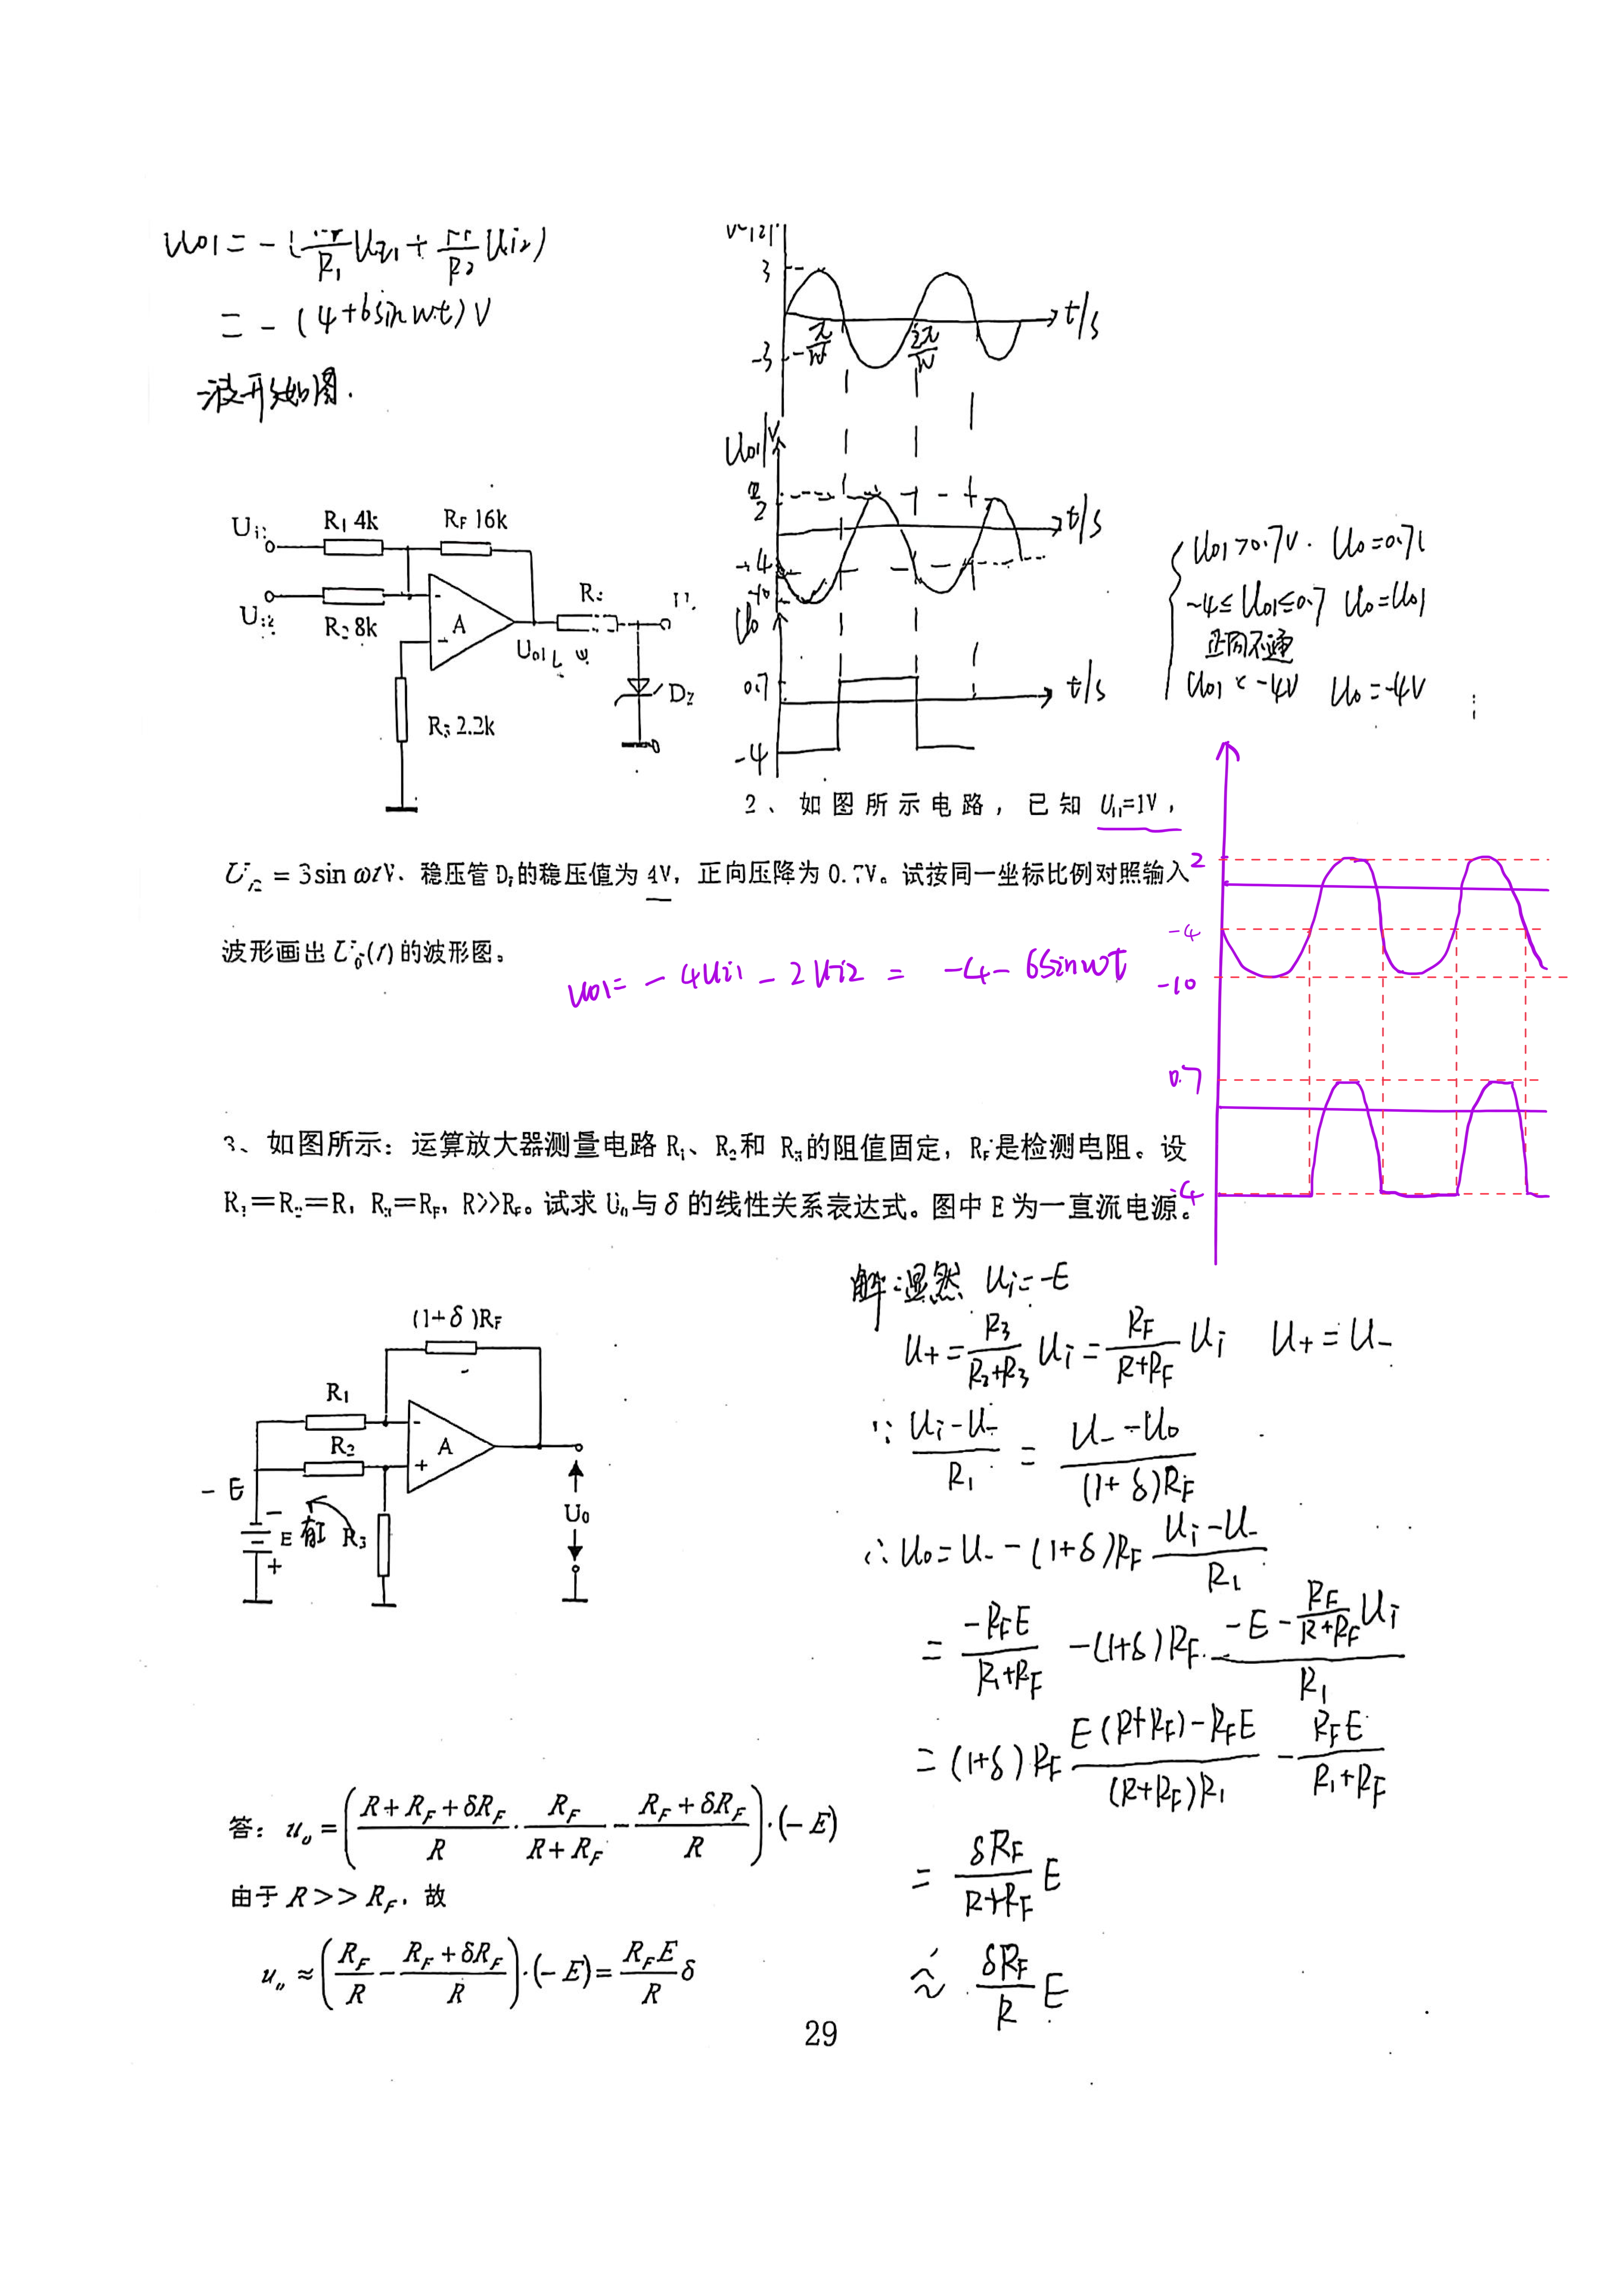 U01 = - ( /R1 Ui1 + /R2 Ui2)
= - (4+6sinωt) V
波形如图.
3
-3
π/w
2π/w
t/s
U01/V
2
-4
-10
t/s
U0
0.7
-4
t/s
R1 4k
RF 16k
R2 8k
A
U01
DZ
R3 2.2k
U01>0.7V. U0=0.7V
-4≤U01≤0.7 U0=U01
正向不通
U01<-4V U0=-4V
2、如图所示电路，已知 Ui1=1V，
Ui2 = 3sin ωtV、稳压管 DZ的稳压值为 4V，正向压降为 0.7V。试按同一坐标比例对照输入
波形画出 U0(t) 的波形图。
u01= -4Ui1 - 2Ui2 = -4-6sinωt
2
-4
-10
0.7
-4
3、如图所示：运算放大器测量电路 R1、R2和 R3的阻值固定，RF是检测电阻。设
R1＝R2＝R，R3＝RF，R>>RF。试求 U0与 δ 的线性关系表达式。图中 E 为一直流电源。
(1+δ)RF
R1
R2
A
- +
- E
E
R3
U0
解:显然 Ui=-E
U+ = R3/(R2+R3) Ui = RF/(R+RF) Ui U+=U-
∵ (Ui-U-)/R1 = (U- -U0)/((1+δ)RF)
∴ U0=U- -(1+δ)RF (Ui-U-)/R1
= -RFE/(R1+RF) -(1+δ)RF · (-E - RF/(R+RF) Ui)/R1
= (1+δ)RF (E(R+RF)-RFE)/((R+RF)R1) - RFE/(R1+RF)
= δRF/(R+RF) E
≈ δRF/R E
答：uo = ((R+RF+δRF)/R · RF/(R+RF) - (RF+δRF)/R)·(-E)
由于 R>>RF，故
uo ≈ (RF/R - (RF+δRF)/R)·(-E) = RFE/R δ
29